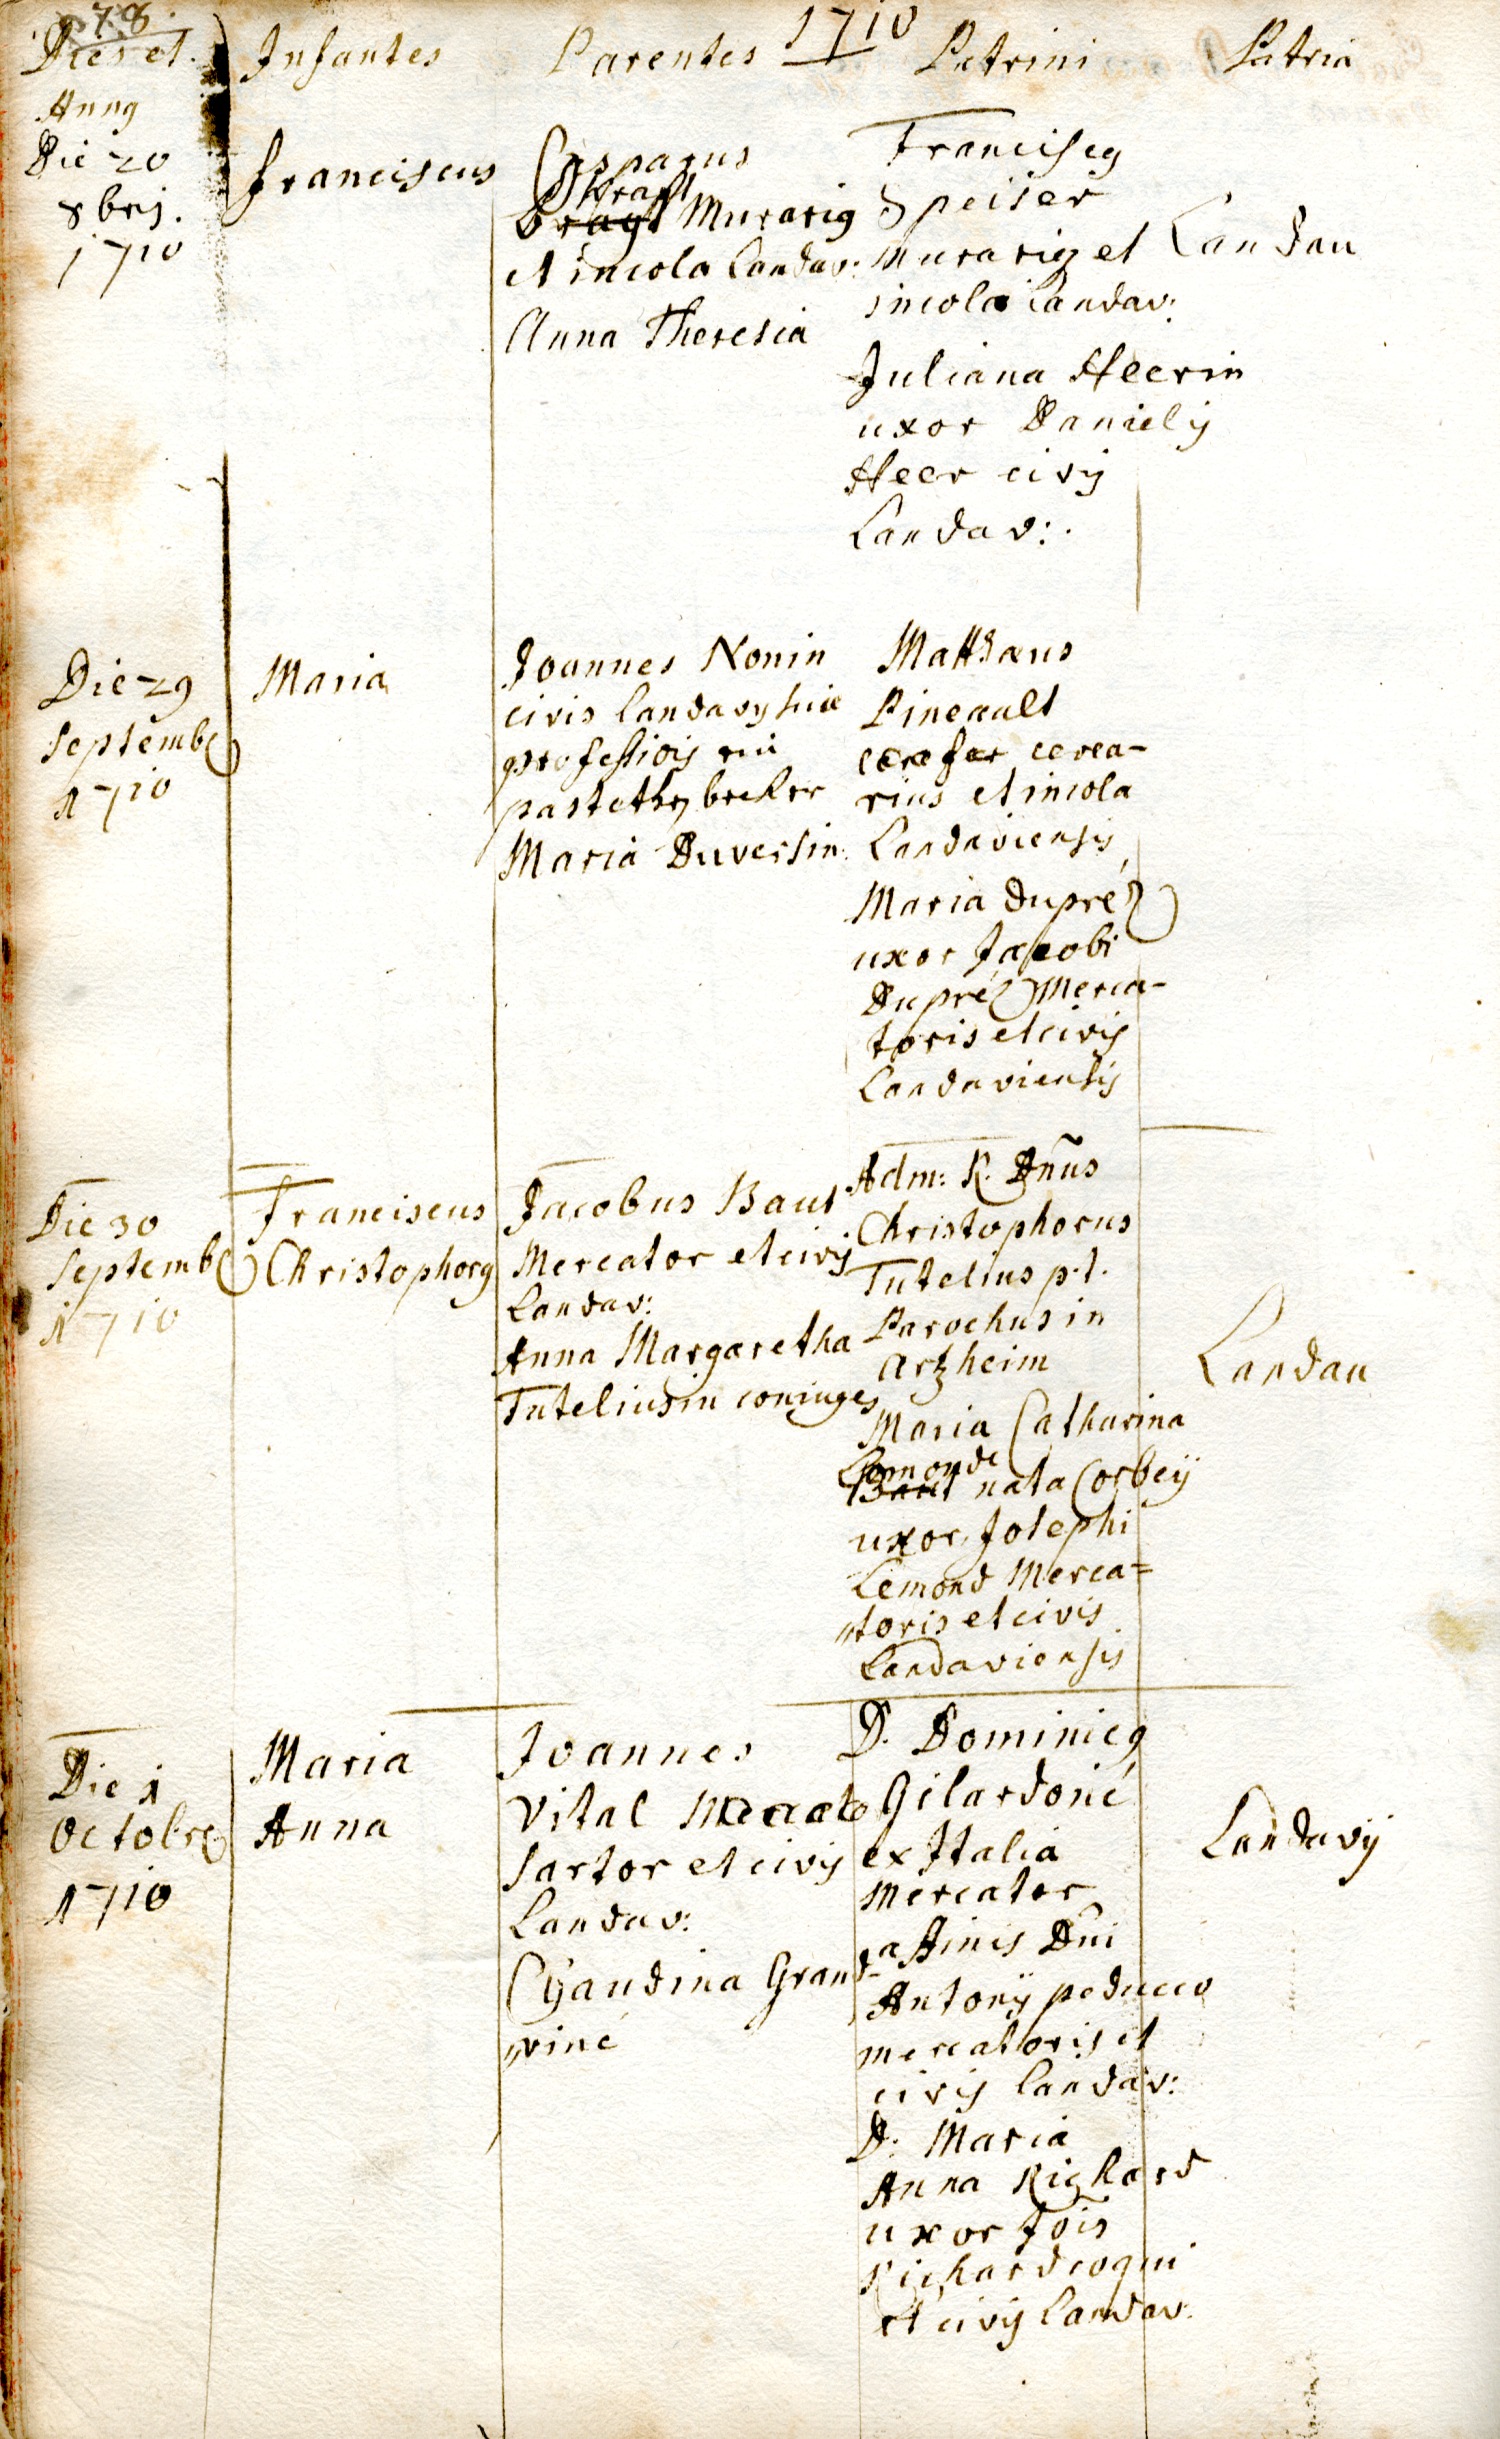 78.
1710
Dies et
Annq
Infantes
Parentes
Patrini
Patria
Die 20
8brj.
1710
Franciscus
Casparus
Kraft
Murariq
et incola Landav:
Anna Theresia
Franciscq
Speiser
Murariq et
incola Landav:
Juliana Heerin
uxor Danielis
Heer civis
Landav:.
Landau
Die 29
Septemb
1710
Maria
Joannes Nonin
civis Landavy suae
professiois ein
pastethen becker
Maria Duversin.
Matthaeus
Pineault
cerea-
rius et incola
Landaviensis
Maria dupréz
uxor Jacobi
Dupréz Merca-
toris et civis
Landaviensis
Die 30
Septemb
1710
Franciscus
Christophorq
Jacobus Baut
Mercator et civis
Landav:
Anna Margaretha
Tuteliusin coniuges
Adm: R. Dñus
Christophorus
Tutelius p.t.
Parochus in
Artzheim
Maria Catharina
Lemonde
Baut nata Corbeij
uxor Josephi
Lemond Merca=
"toris et civis
Landaviensis
Landau
Die 1
Octobr
1710
Maria
Anna
Joannes
Vital
Sartor et civis
Landav:
Claudina Grand-
"viné
D. Dominicq
Gilardoné
ex Italia
Mercator
affinis Dñi
Antonij peducco
mercatoris et
civis Landav:
D. Maria
Anna Richard
uxor Jois
Richard coqui
et civis Landav:
Landavij